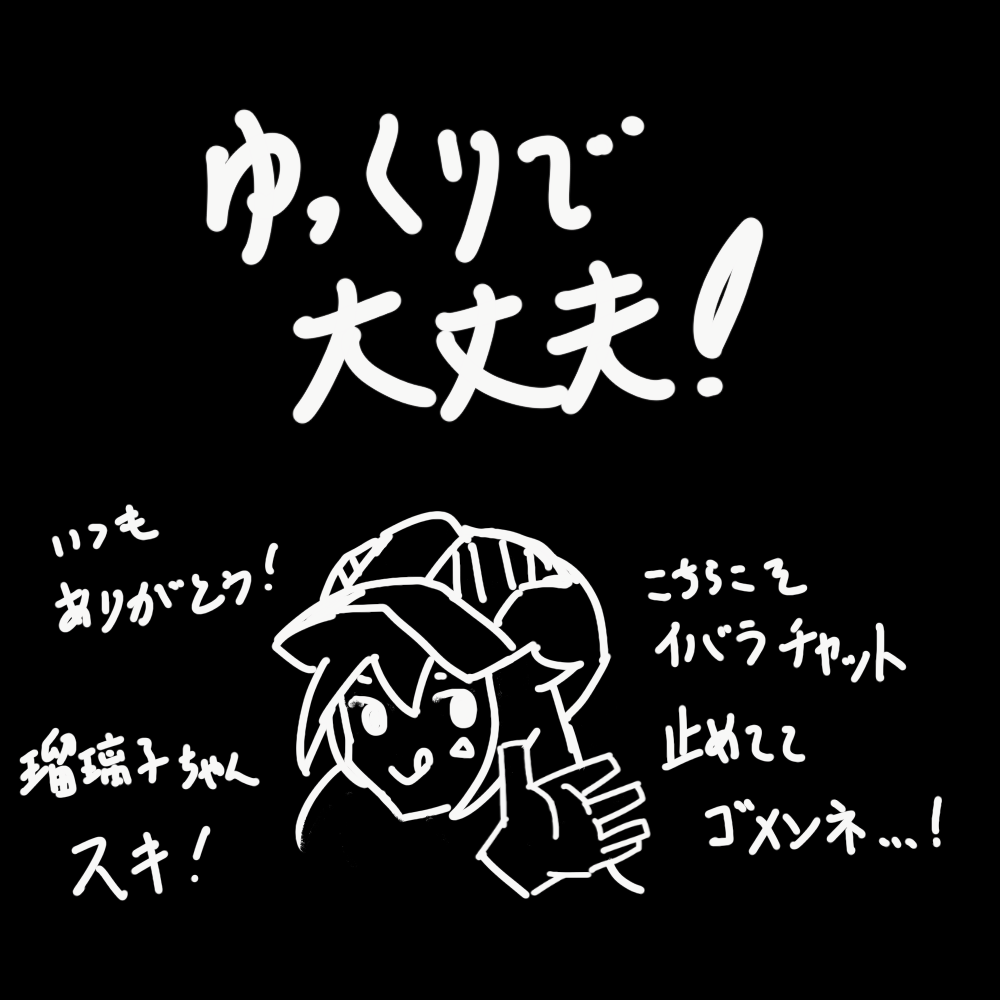 ゆっくりで
大丈夫!
いつも
ありがとう!
瑠璃子ちゃん
スキ!
こちらこそ
イバラチャット
止めてて
ゴメンネ...!